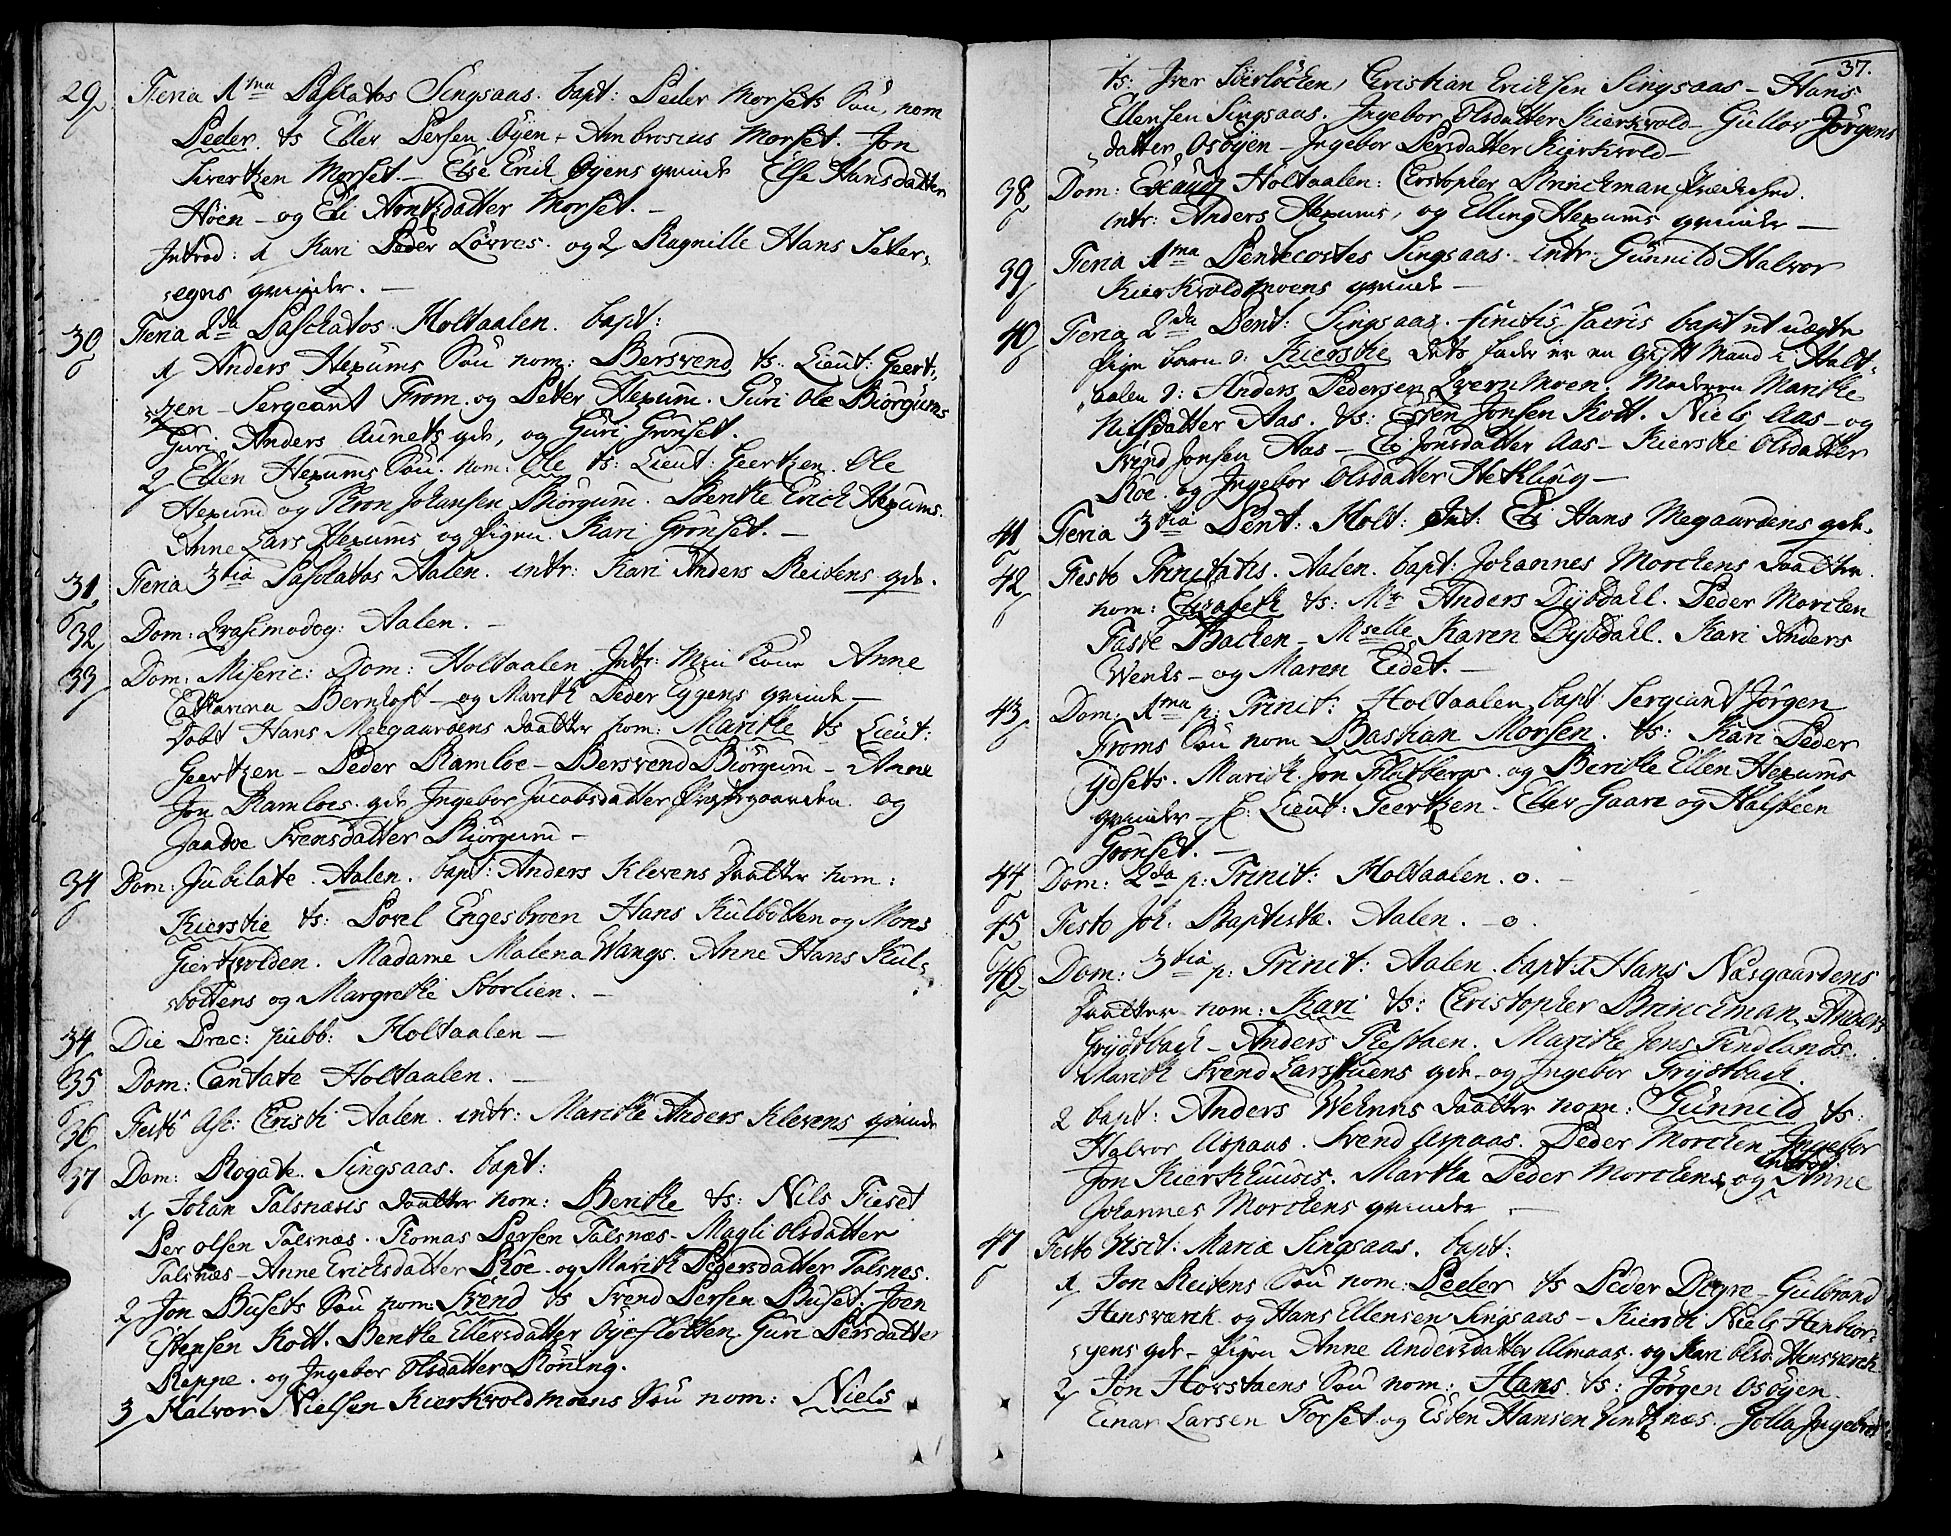 29. Feria 1ma Paschatos Singsaas. bapt: Peder Morsets Søn, nom
Peder. ts Eller Persen Øyen - Ambrosius Morset. Jon
Sivertzen Morset. - Else Erick Øyens qvinde Else Hansdatter
Høen - og Eli Arntzdatter Morset. -
Introd: 1 Kari Peder Løvres. og 2 Ragnille Hans Seter-
egns qvinder. -
30 Feria 2da Paschatos. Holtaalen. bapt:
1 Anders Hexums Søn nom: Bersvend ts: Lieut: Geert-
zen - Sergeant From. og Peter Hexum. Guri Ole Biørgums
Guri Anders Aunets qde, og Guri Grønset.
2 Ellen Hexums Søn. nom: Ole ts: Lieut: Geertzen. Ole
Hexum og Bron Johansen Biørgum. Berithe Erich Hexums.
Anne Lars Hexums og Pigen Kari Grønset. -
31 Feria 3tia Paschatos Aalen. intr: Kari Anders Reitens qde.
32 Dom: Qvasimodog: Aalen. -
33 Dom: Miseric: Dom: Holtaalen Intr: Min Kone Anne
Catharina Bernhoft - og Marith Peder Eggens qvinde -
Døbt Hans Meegaardens daatter nom: Marithe ts Lieut:
Geertzen - Peder Ramloe - Bersvend Biørgum - Anne
Jon Ramloes qde Ingebor Jacobsdatter Prestegaarden og
Jaadve Svensdatter Biørgum -
34 Dom: Jubilate. Aalen. bapt: Anders Klevens Daatter nom:
Kierstie ts: Povel Engesbroen Hans Kulbotten og Mons
Giertzvolden. Madame Malena Wangs. Anne Hans Kul-
bottens og Margrethe Storlien. -
34 Die Prec: pubb: Holtaalen -
35 Dom: Cantate Holtaalen. -
36 Festo Asc: Christi Aalen. intr: Marithe Anders Klevens qvinde
37 Dom: Rogate. Singsaas. bapt:
1 Johan Talsnæsis daatter nom: Benthe ts: Nils Fieset
Per Olsen Talsnæs. Tomas Persen Talsnæs - Magli Olsdatter
Talsnæs - Anne Erichsdatter Roe. og Marith Pedersdatter Talsnes.
2 Jon Busets Søn nom Svend ts Svend Persen Buset, Joen
Estensen Kott. Benthe Ellersdatter Øyeslotten. Guri Persdatter
Reppe. og Ingebor Olsdatter Røning.
3 Halvor Nielsen Kierkvoldmoens Søn nom: Niels
37.
ts: Iver Cristian Ericksen Singsaas - Hans
Ellensen Singsaas. Ingebor Olsdatter Kierkvold - Gullov Jørgens
datter Osøyen - Ingebor Persdatter Kierkvold -
38 Dom: Exaudi Holtaalen: Cristopher Brinckman Prædiked.
intr: Anders Hexums, og Elling Hexums qvinder -
39 Feria 1ma Pentecostes Singsaas. intr: Gunnild Halvor
Kierkvoldmoens qvinde -
40 Feria 2da Pent: Singsaas. finitis sacris bapt et uægte
Pige barn n: Kierstie dets fader er en Gift Mand i Holt-
aalen n: Anders Pedersen Moen. Moderen Marithe
Nilsdatter Aas. ts: Esten Jonsen Kott. Niels Aas - og
Svend Jonsen Aas - Eli Jonsdatter Aas - Kierstie Olsdatter
Roe. og Ingebor Olsdatter Hetling -
41 Feria 3tia Pent: Holt: Int: Eli Hans Megaardens qde.
42 Festo Trinitatis. Aalen. bapt: Johannes Morchens daatter
nom: Elisabeth ts: Mr Anders Dybdahl. Peder Morchen
Faste Bachen - Mselle Karen Dybdahl. Kari Anders
Wenks - og Maren Eidet. -
43 Dom: 1ma p: Trinit: Holtaalen bapt Sergiant Jørgen
Froms Søn nom Bastian Morsen. ts: Kari Peder
Ydsets. Marith Jon Flatbergs. og Berithe Ellen Hexums
qvinder - Lieut: Geertzen. Eller Gaare og Halsteen
Grønset. -
44 Dom: 2da p: Trinit: Holtaalen. o. -
45 Festo Joh: Baptistæ. Aalen. - o.
46 Dom: 3tia p: Trinit: Aalen. bapt: 1 Hans Næsgaardens
Daatter nom: Kari ts: Cristopher Brinckman, Anders
Grydtbach - Anders Marithe Jens Findlands.
Marith Svend Larstuens qde - og Ingebor Grydtbach.
2 bapt: Anders Wehnis daatter nom: Gunnild ts:
Halvor Aspaas. Svend Aspaas. Peder Morchen Ingebor
Jon Kierkhuusis. Martha Peder Morchens, og Anne
Johannes Morchens qvinder -
47 Festo Visit: Mariæ Singsaas. bapt:
1 Jon Reitens Søn nom Peder ts Peder Digre - Gulbrand
Hensværck og Hans Ellensen Singsaas - Kiersti Niels Henkior-
yens qde - Pigen Anne Andersdatter Almaas. og Kari Olsd. Hensværck
2 Jon Horstaens Søn nom: Hans. ts: Jørgen Osøyen.
Einar Larsen Forset og Esten Hansen Vintznæs.